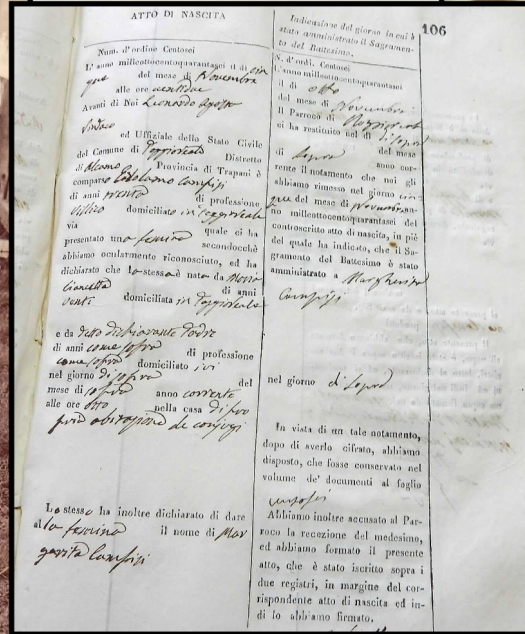 106
ATTO DI NASCITA
Num. d'ordine Centosei
L'anno millottocentoquarantasei il di cin
que del mese di Novembre
alle ore ventidue
Avanti di Noi Leonardo Agosta
Sindaco
ed Uffiziale dello Stato Civile
del Comune di Poggioreale
Distretto
di Alcamo Provincia di Trapani è
comparso Girolamo Campisi
di anni trenta di professione
villico domiciliato in Poggioreale
via quale ci ha
presentato una femina secondocchè
abbiamo ocularmente riconosciuto, ed ha
dichiarato che lo stesso è nata da Maria
di anni
venti domiciliata in Poggioreale
e da detto dichiarante Padre
di anni come sopra di professione
come sopra domiciliato ivi
nel giorno di sopra del
mese di sopra anno corrente
alle ore otto nella casa di sua
de conjugi
Lo stesso ha inoltre dichiarato di dare
alla femina il nome di Mar
garita Campisi
Indicazione del giorno in cui è
stato amministrato il Sagramen-
to del Battesimo.
N. d'ordi. Centosei
L'anno millottocentoquarantasei
il di otto
del mese di Novembre
il Parroco di
ci ha restituito nel di di sopra
di sopra del mese
anno cor-
rente il notamento che noi gli
abbiamo rimesso nel giorno cin-
que del mese di Novembre an-
no millottocentoquarantasei del
controscritto atto di nascita, in piè
del quale ha indicato, che il Sa-
gramento del Battesimo è stato
amministrato a Margherita
Campisi
nel giorno di sopra
In vista di un tale notamento,
dopo di averlo cifrato, abbiamo
disposto, che fosse conservato nel
volume de' documenti al foglio
Abbiamo inoltre accusato al Par-
roco la recezione del medesimo,
ed abbiamo formato il presente
atto, che è stato iscritto sopra i
due registri, in margine del cor-
rispondente atto di nascita ed in-
di lo abbiamo firmato.